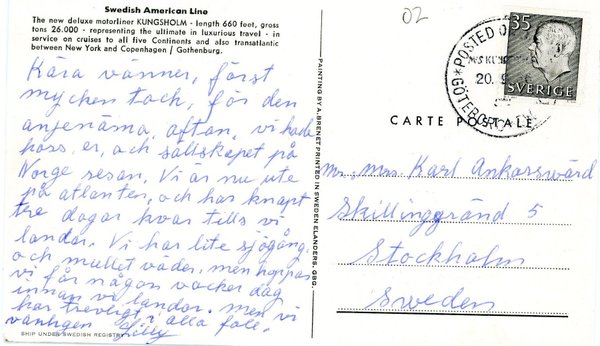 Swedish American Line
The new deluxe motorliner KUNGSHOLM - length 660 feet, gross
tons 26.000 - representing the ultimate in luxurious travel - in
service on cruises to all five Continents and also transatlantic
between New York and Copenhagen / Gothenburg.
Kära vänner, först
mycken tack, för den
angenäma, afton, vi hade
hoss, er, och sällskapet på
Norge resan. Vi är nu ute
på atlanten, och har knapt
tre dagar kvar tills vi
landar. Vi har lite sjögång
och mullet väder, men hoppas
vi får någon vacker dag
innan vi landar. men vi
har trevligt i alla fall.
vänligen Lilly
SHIP UNDER SWEDISH REGISTRY
PAINTING BY A. BRENET PRINTED IN SWEDEN ELANDERS, GBG.
02
POSTED
M/S
20. 9.
GÖTEBORG
35
SVERIGE
CARTE POSTALE
Mr, Mrs Karl Ankarswärd
Skillinggränd 5
Stockholm
Sweden